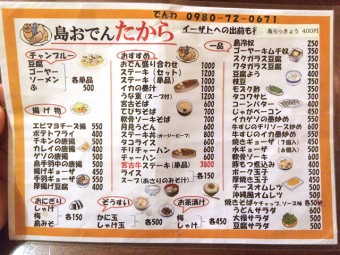 でんわ 0980-72-0671
島おでん たから
イーザトへの出前も可
島らっきょう 400円
チャンプルー
豆腐
ゴーヤー
ソーメン
ふ
各単品 500
揚げ物
エビマヨチーズ揚 500
ポテトフライ 400
チキンの唐揚 500
イカの唐揚 500
ゲソの唐揚 500
島手羽中の唐揚 500
揚げギョーザ 450
手羽ギョーザ 500
厚揚げ豆腐 500
おにぎり
梅
しゃけ
島みそ
各150
おすすめ
おでん盛り合わせ 1000
ステーキ(セット) 1200
ステーキ(単品) 1000
イカの墨汁 1000
うち豆(スープ付) 1000
宮古そば 600
ゆし豆腐そば 700
軟骨ソーキそば 700
月見うどん 600
ステーキ丼 1000
タコライス 700
チャーハン 700
宮古牛ステーキ(単品)
ライス 150
スープ(あさりのみそ汁) 150
ぞうすい
かに玉
しゃけ玉
各500
お茶漬け
梅
しゃけ
各450
一品
島冷奴 250
ゴーヤーキムチ奴 350
スクガラス豆腐 350
スクガラス 300
豆腐よう 350
枝豆 300
モズク酢 350
タコワサビ 350
コーンバター 350
じゃがバター 400
イカゲソの墨炒め 500
牛すじのチリソース炒め 500
牛すじの墨炒め 500
焼きギョーザ(7個入) 450
水ギョーザ(6個入) 450
軟骨ソーキ 500
豚もやし炒め 500
ポーク玉子 500
厚焼き玉子 450
チーズオムレツ 500
沖縄オムレツ 550
焼きそばケチャップ、ソース味 各500
うどんサラダ 500
大根サラダ 500
豆腐サラダ 500